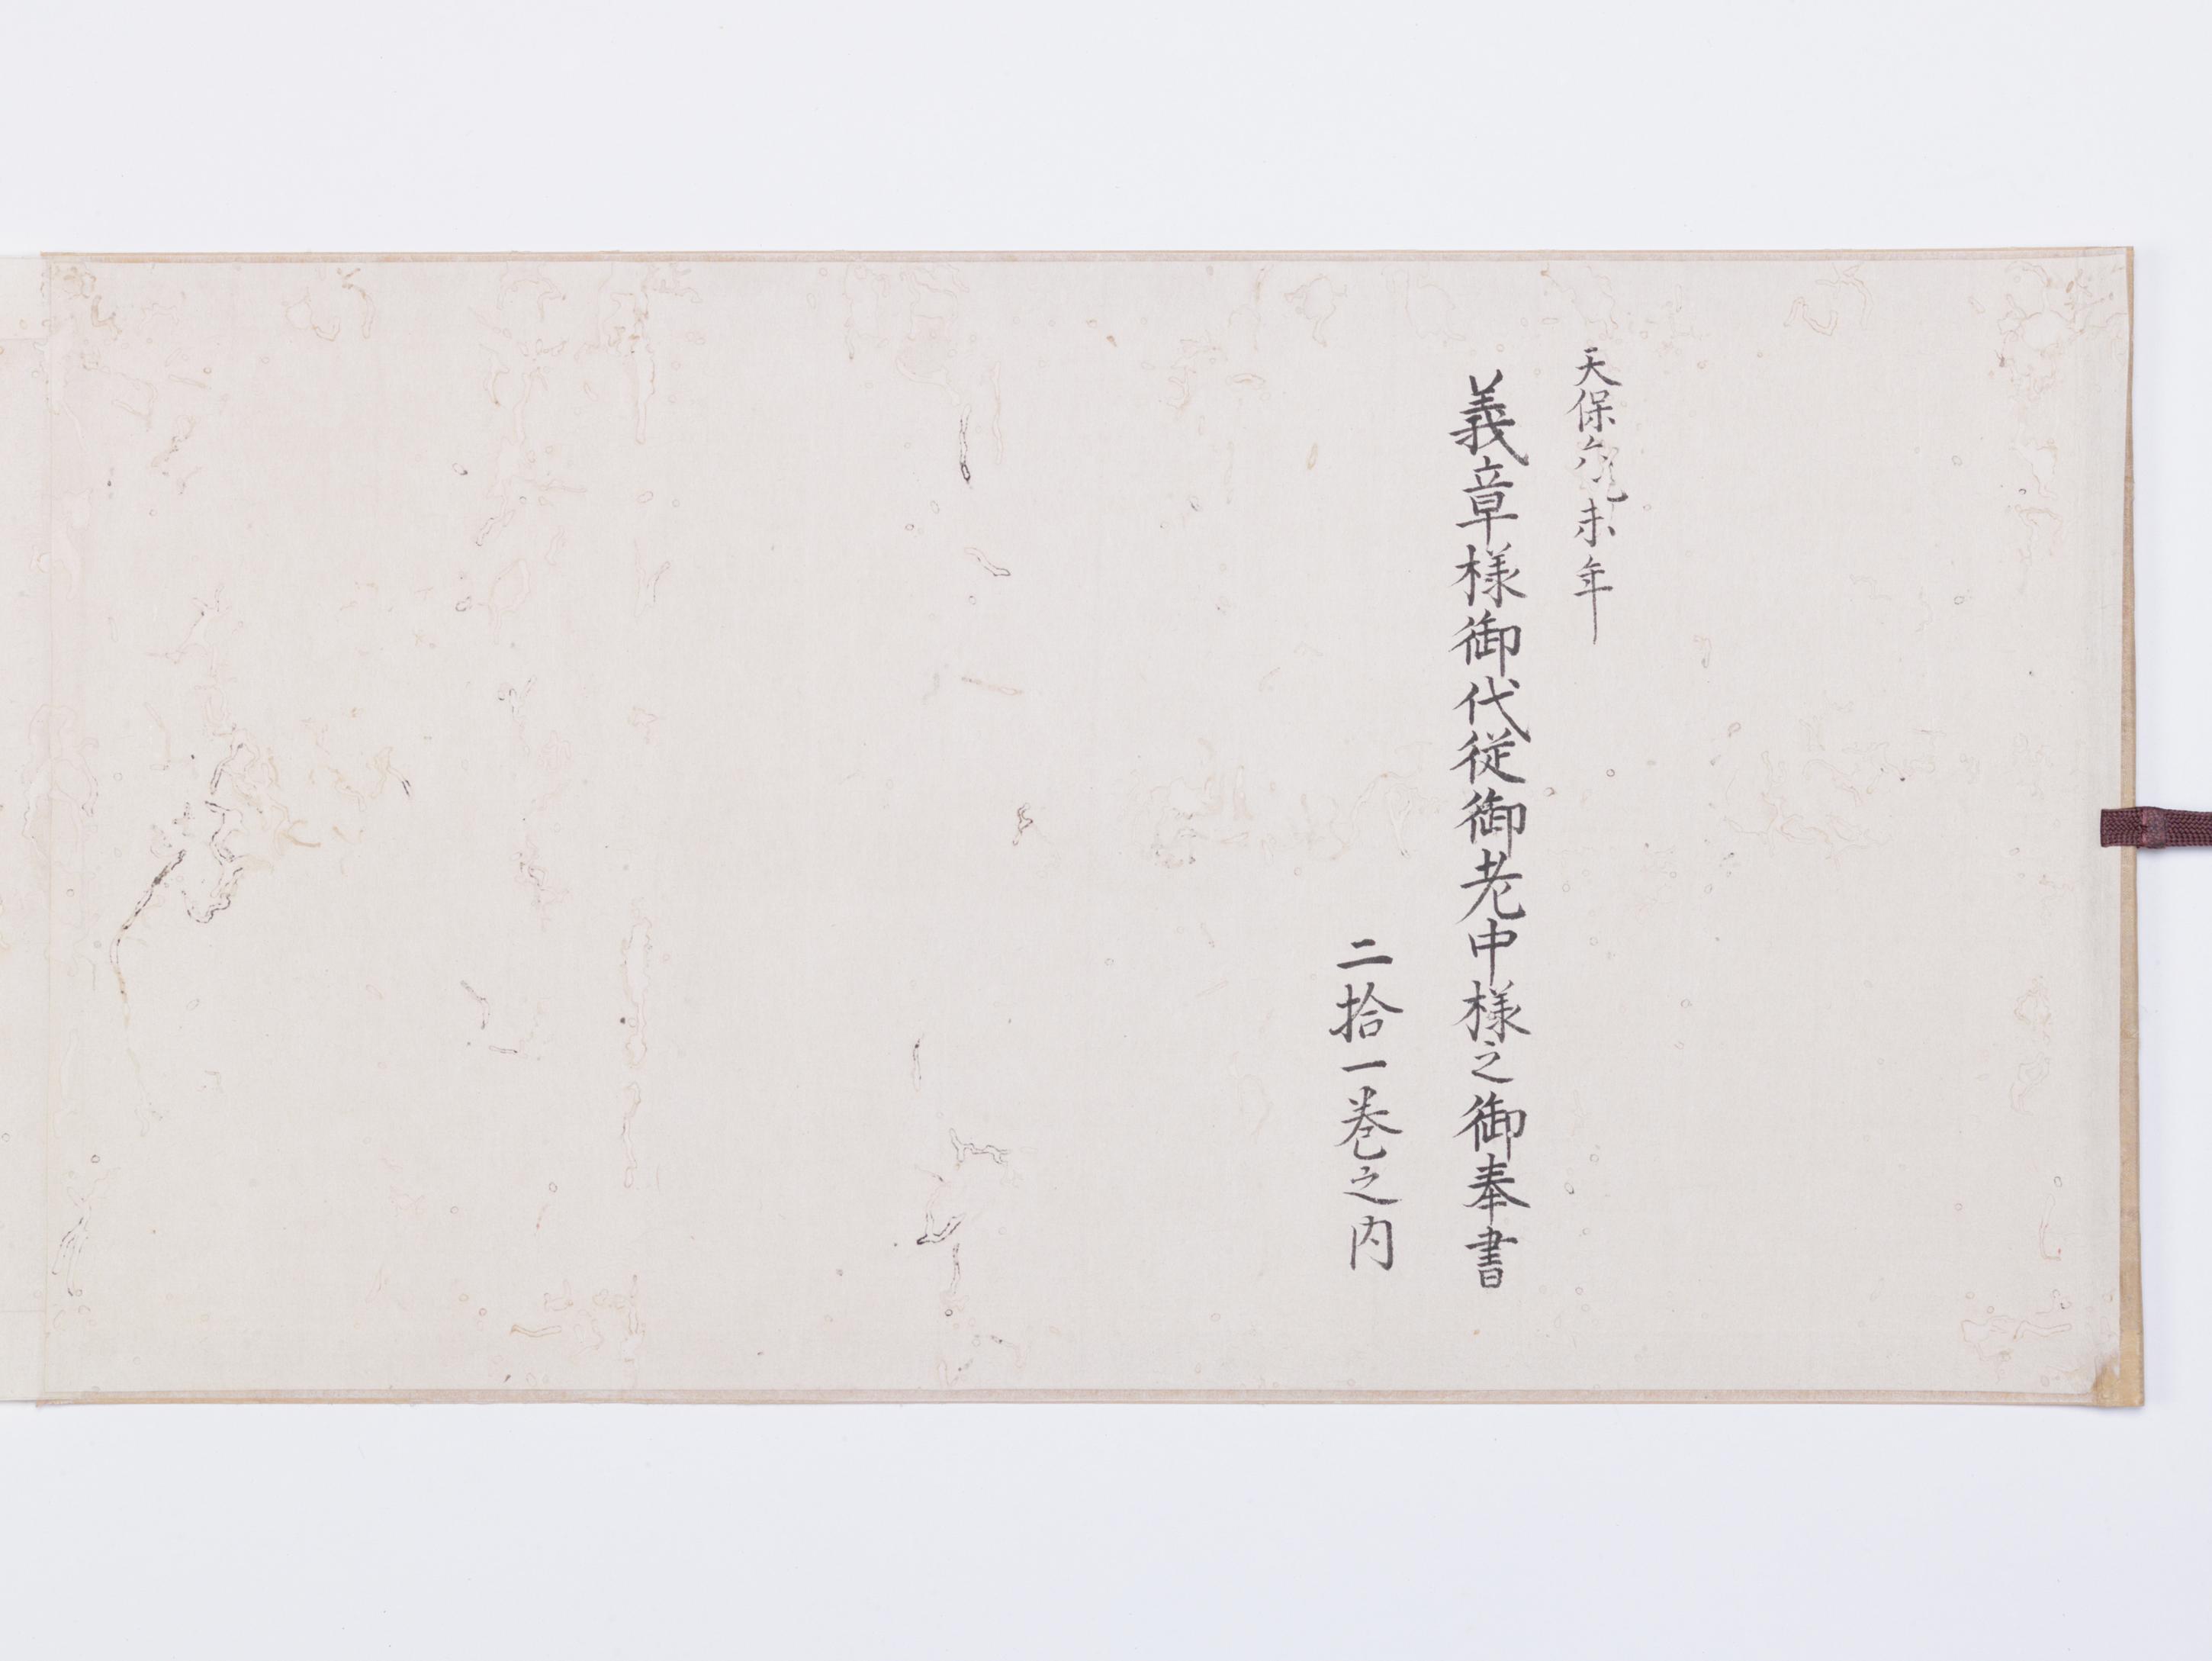 天保六乙未年
義章様御代従御老中様之御奉書
二拾一巻之内